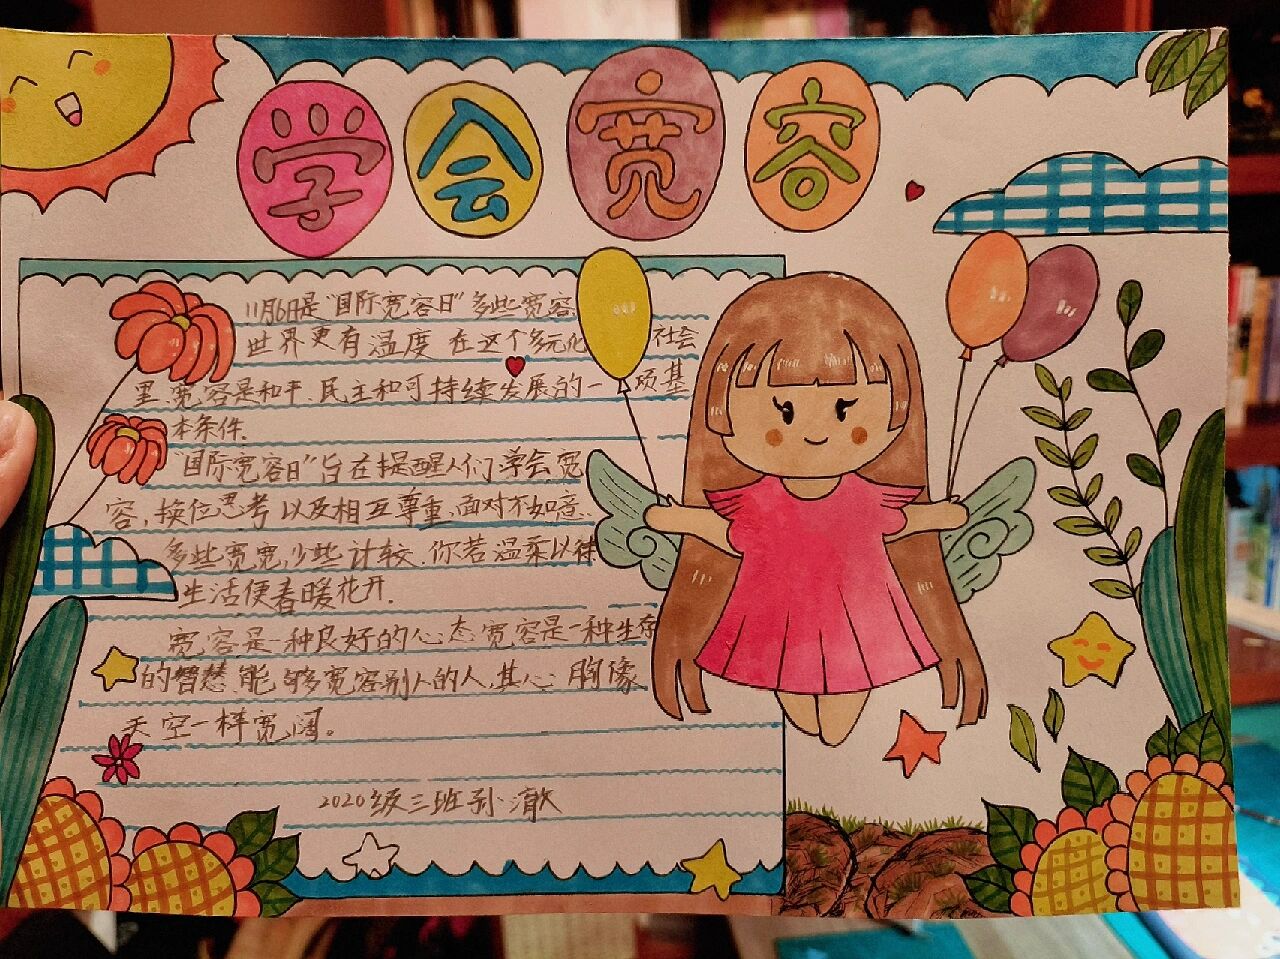 学会宽容
11月6日是"国际宽容日"多些宽容
世界更有温度 在这个多元化 社会
里宽容是和平、民主和可持续发展的一项基
本条件.
"国际宽容日"旨在提醒人们学会宽
容,换位思考以及相互尊重.面对不如意.
多些宽宽,少些计较.你若温柔以待
生活便春暖花开.
宽容是一种良好的心态宽容是一种生存
的智慧.能够宽容别人的人.其心 胸像
天空一样宽阔。
2020级三班孙澈